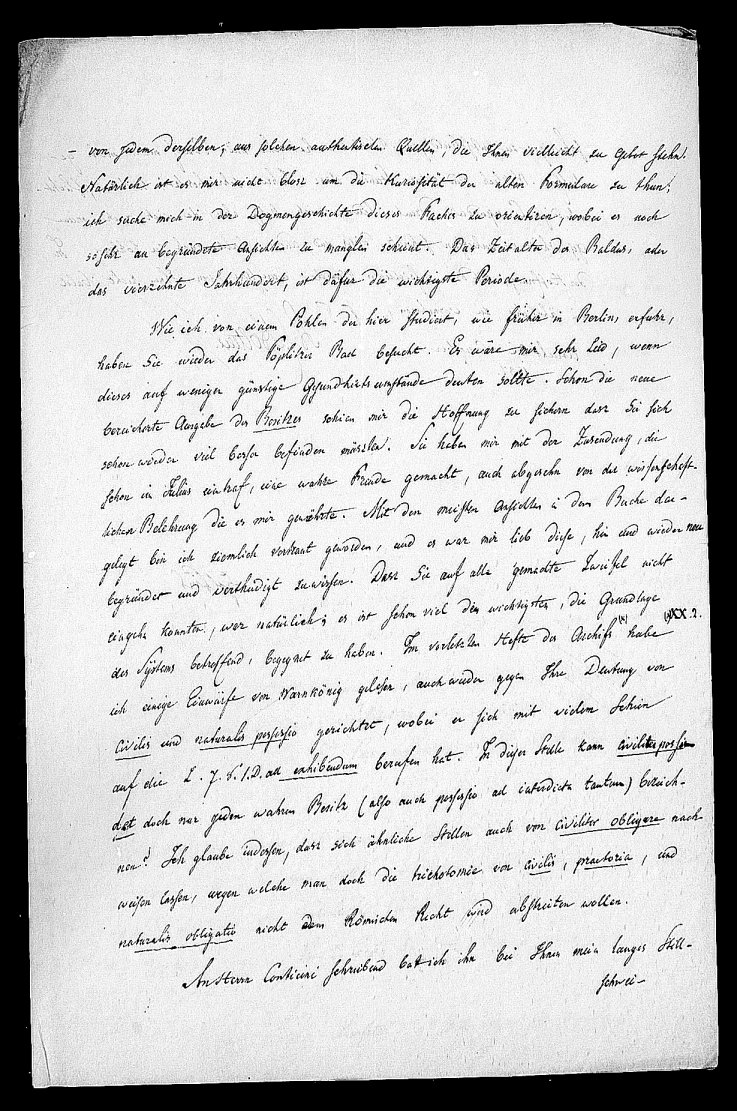 – von jedem derselben; aus solchen authentischen Quellen, die Ihnen vielleicht zu Gebot stehn.
Natürlich ist es mir nicht blosz um die Kuriosität der alten Formulare zu thun;
ich suche mich in der Dogmengeschichte dieses Faches zu orientiren, wobei es noch
so sehr an begründete Ansichten zu manglen scheint. Das Zeitalter des Baldus, oder
das vierzehnte Jahrhundert, ist dafür die wichtigste Periode.
Wie ich von einem Pohlen der hier studiert, wie früher in Berlin, erfuhr,
haben Sie wieder das Töplitzer Bad besucht. Es wäre mir sehr Leid, wenn
dieses auf weniger günstige Gesundheitsumstände deuten sollte. Schon die neue
bereicherte Ausgabe des Besitzes schien mir die Hoffnung zu sichern dasz Sie sich
schon wieder viel besser befinden müszten. Sie haben mir mit der Zusendung, die
schon in Julius eintraf, eine wahre Freude gemacht, auch abgesehn von der wissenschaft-
lichen Belehrung die es mir gewährte. Mit den meisten Ansichten in dem Buche dar-
gelegt bin ich ziemlich vertraut geworden, und es war mir lieb diese, hin und wieder neu
begründet und vertheidigt zu wissen. Dasz Sie auf alle gemachte Zweifel nicht
eingehn konnten, war natürlich; es ist schon viel den wichtigsten, die Grundlage
des Systems betreffend, begegnet zu haben. Im vorletzten Hefte des Archifs (x) habe (x) XX. 2.
ich einige Einwürfe von Warnkönig gelesen, auch wieder gegen Ihre Deutung von
civilis und naturalis possessio gerichtet, wobei er sich mit vielem Schein
auf die L. 7. §. 1. D. ad exhibendum berufen hat. In dieser Stelle kann civiliter possi-
det doch nur jeden wahren Besitz (also auch possessio ad interdicta tantum) bezeich-
nen? Ich glaube indessen, dasz sich ähnliche Stellen auch von civiliter obligare nach-
weisen lassen, wegen welche man doch die trichotomie von civilis, praetoria, und
naturalis obligatio nicht dem Römischen Recht wird abstreiten wollen.
An Herrn Conticini schreibend bat ich ihn bei Ihnen mein langes Still-
schwei-